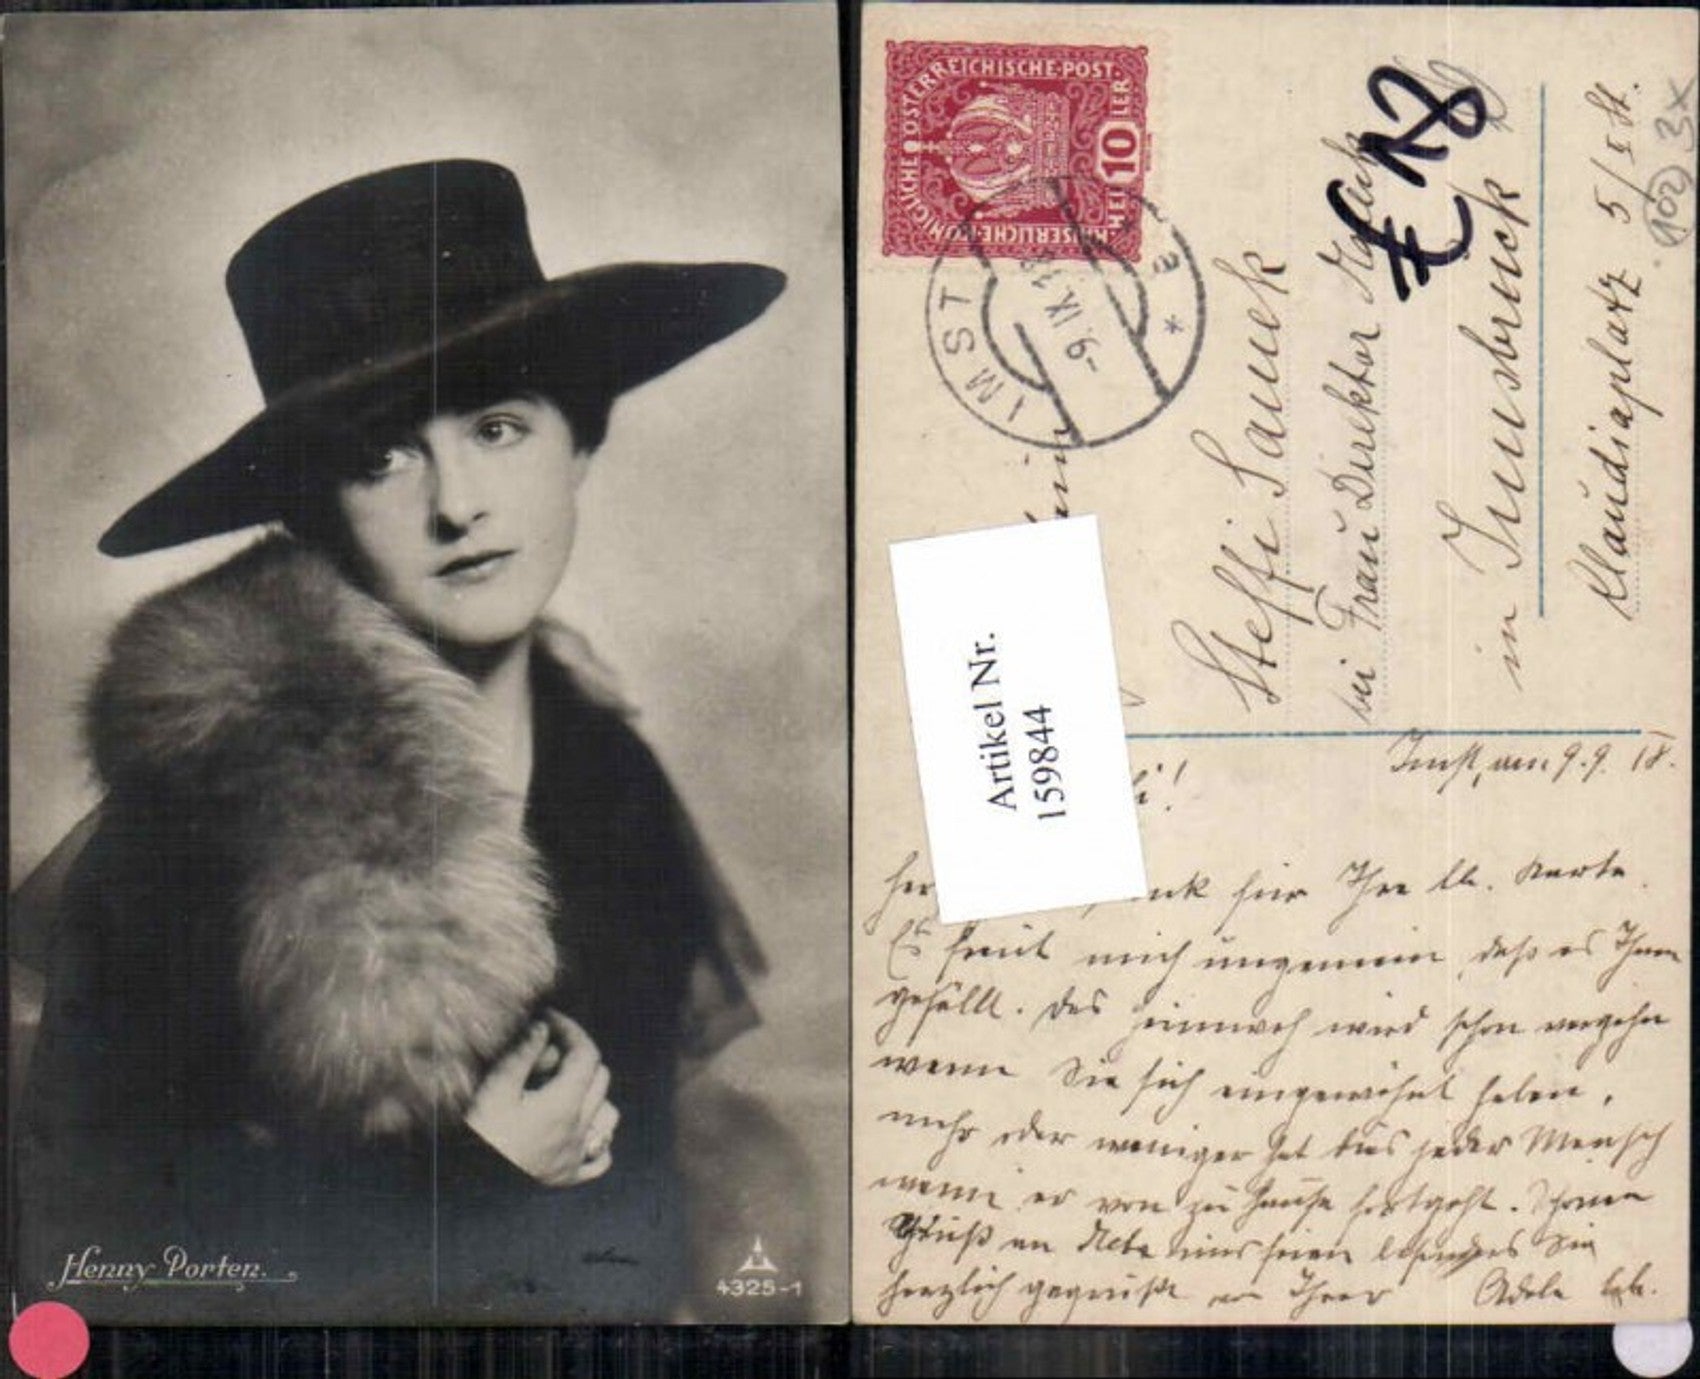 Henny Porten.
4325-1
KAISERLICHE KÖNIGLICHE ÖSTERREICHISCHE POST
HELLER
10
IMST
-9. IX. 18
* a
Steffi
bei Frau Direktor
in Innsbruck
Klaudiaplatz 5/I St.
Artikel Nr.
159844
102 3x
€ 18
Imst, am 9.9.18.
für Ihre lb. Karte.
Es freut mich ungemein, daß es Ihnen
gefällt. Das Heimweh wird schon vergehn
wenn Sie sich eingewöhnt haben,
mehr oder weniger hat dies jeder Mensch
wenn er von zu Hause fortgeht. Schönen
Gruß an
herzlich gegrüßt von Ihrer Adele